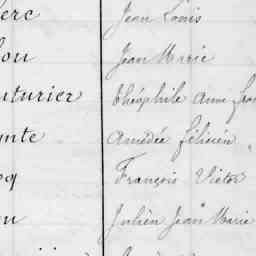 erc Jean Louis
ou Jean Marie
uturier théophile anne fran
nte amédée félicien
oq François Victor
u Julien Jean Marie